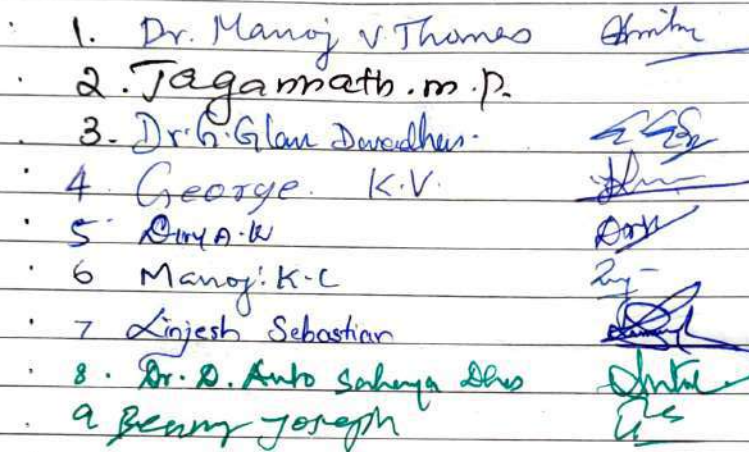 1. Dr. Manoj V Thomas
2. Jagannath.m.p.
3. Dr. G. Glan Devadhas.
4 George. K.V.
5 Divya.K
6 Manoj. K-C
7 Linjesh Sebastian
8. Dr. D. Anto Sahaya Dhas
9 Benny Joseph